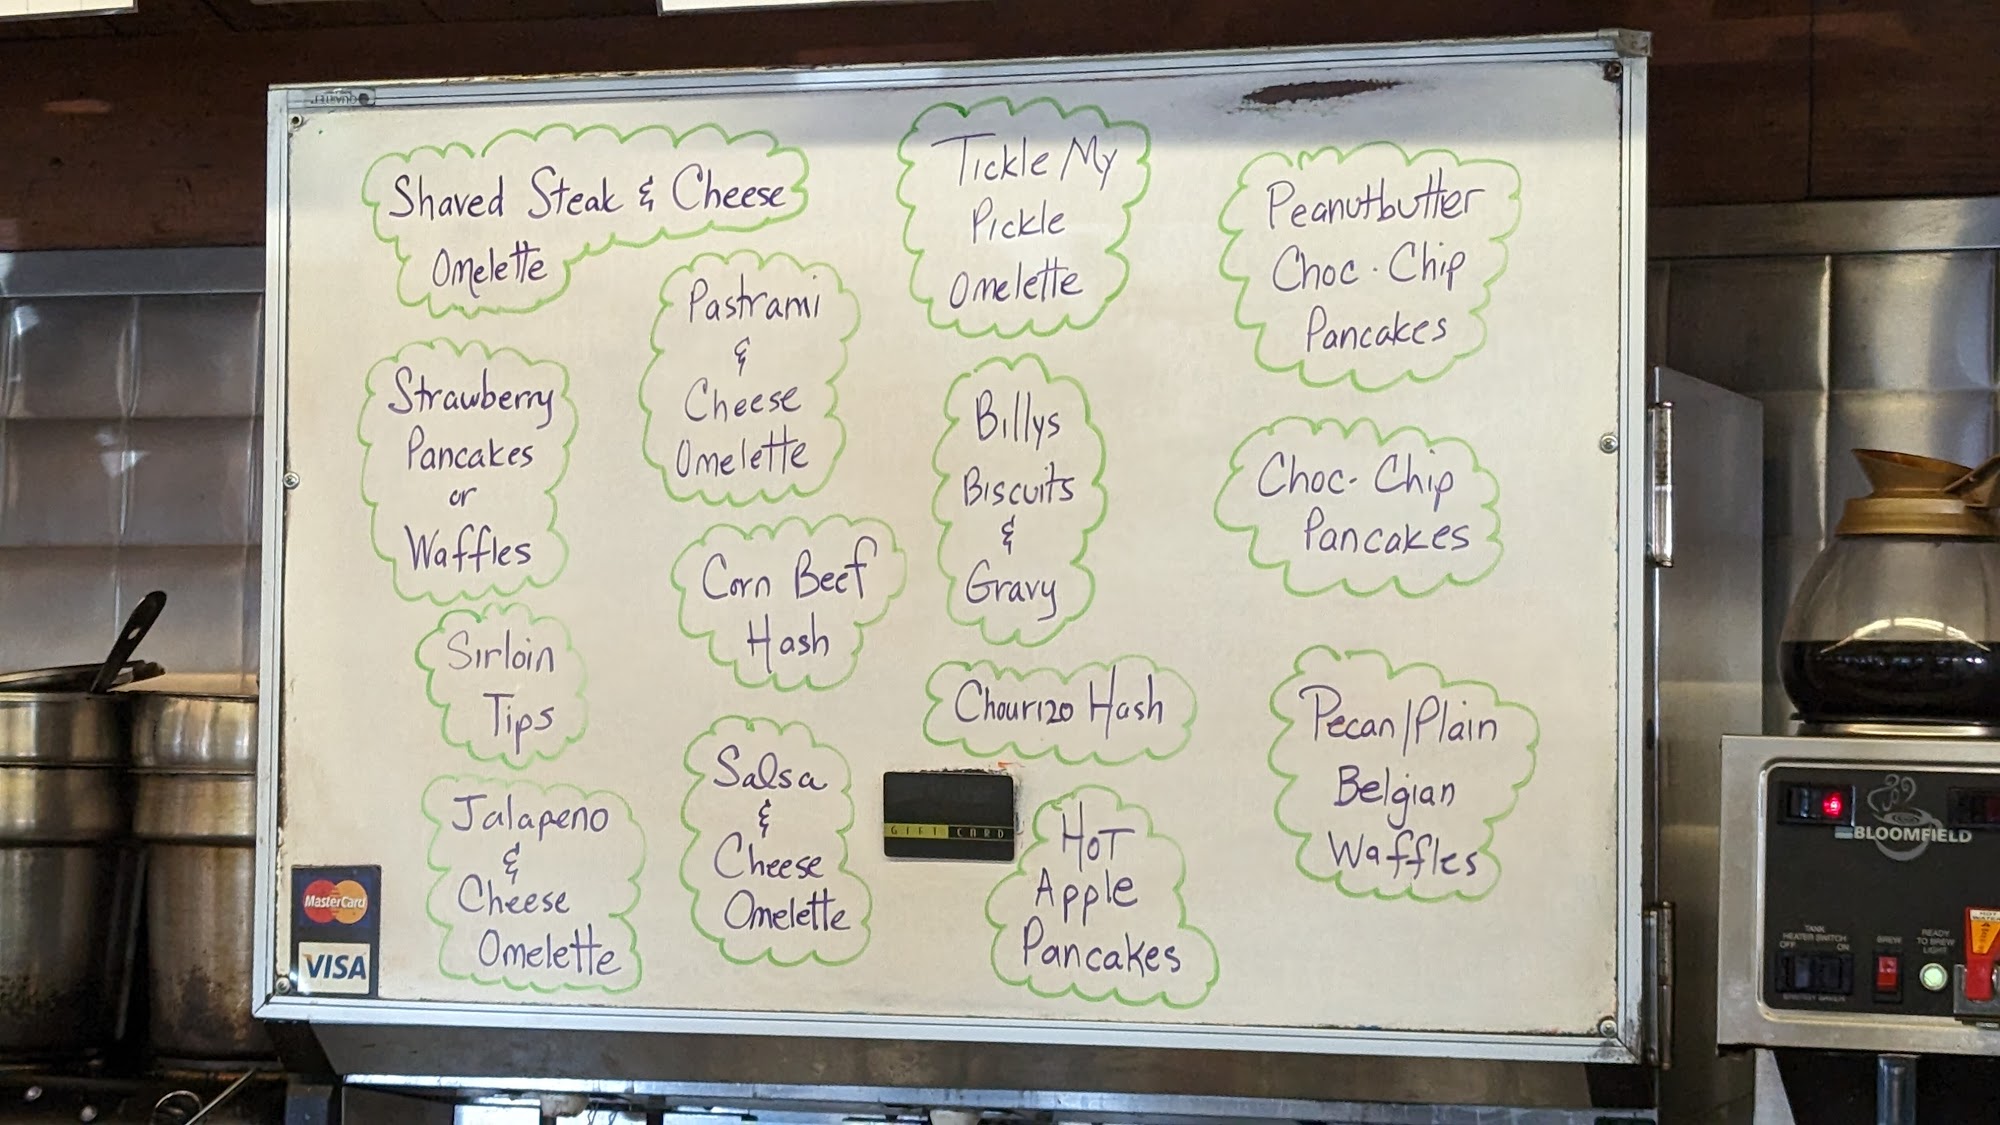 Shaved Steak & Cheese
Omelette
Strawberry
Pancakes
or
Waffles
Sirloin
Tips
Jalapeno
&
Cheese
Omelette
Pastrami
&
Cheese
Omelette
Corn Beef
Hash
Salsa
&
Cheese
Omelette
Tickle My
Pickle
Omelette
Billys
Biscuits
&
Gravy
Chourizo Hash
Hot
Apple
Pancakes
Peanutbutter
Choc. Chip
Pancakes
Choc. Chip
Pancakes
Pecan/Plain
Belgian
Waffles
GIFT CARD
MasterCard
VISA
QUARTET
BLOOMFIELD
TANK
HEATER SWITCH
OFF ON
BREW
READY
TO BREW
LIGHT